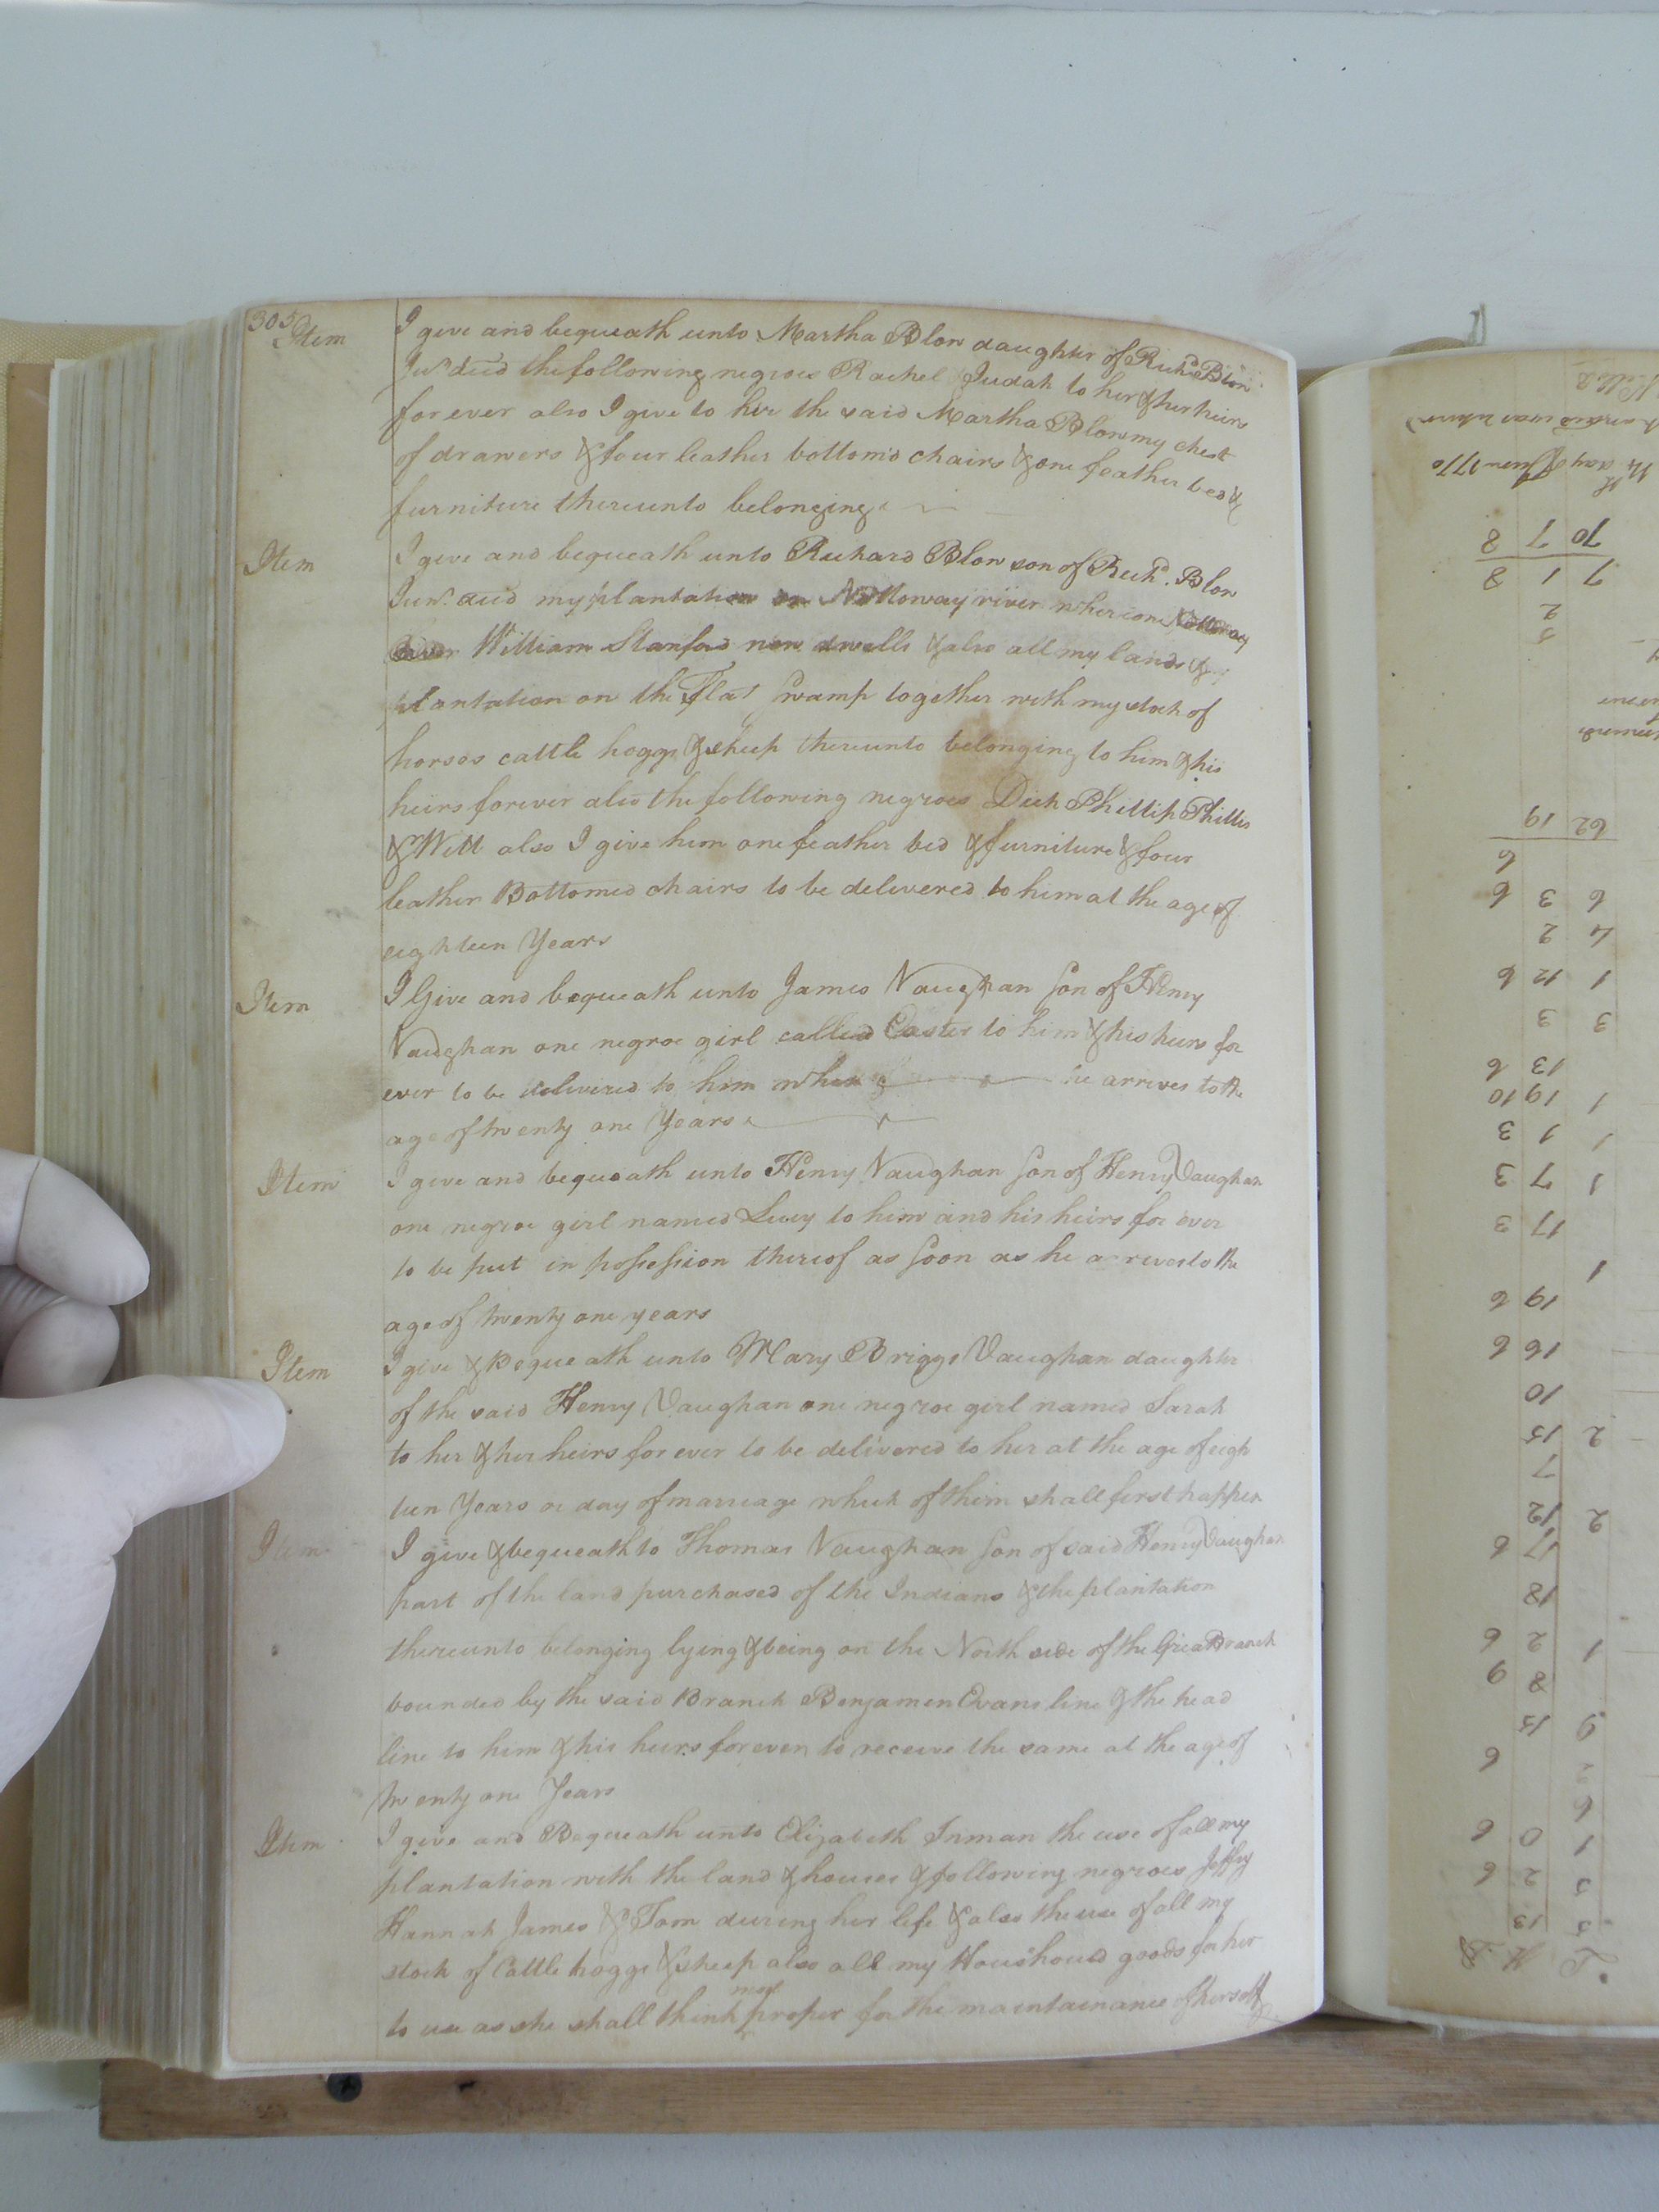 305
Item I give and bequeath unto Martha Blow daughter of Richd Blow
Junr. decd the following negroes Rachel & Judah to her & her heirs
for ever also I give to her the said Martha Blow my chest
of drawers & four leather bottomd chairs & one feather bed &
furniture thereunto belonging
Item I give and bequeath unto Richard Blow son of Richd. Blow
Junr. decd my plantation on Nottoway river whereone Nottoway
River William Stanford now dwells & also all my lands &
plantation on the Flat Swamp together with my stock of
horses cattle hoggs & sheep thereunto belonging to him & his
heirs forever also the following negroes Dick Phillip Phillis
& Will also I give him one feather bed & furniture & four
leather Bottomed chairs to be delivered to him at the age of
eighteen Years
Item I Give and bequeath unto James Vaughan Son of Henry
Vaughan one negroe girl called Easter to him & his heirs for
ever to be delivered to him when he arrives to the
age of twenty one Years
Item I give and bequeath unto Henry Vaughan Son of Henry Vaughan
one negroe girl named Lucy to him and his heirs for ever
to be put in possession thereof as soon as he arrives to the
age of twenty one years
Item I give & Bequeath unto Mary Briggs Vaughan daughter
of the said Henry Vaughan one negroe girl named Sarah
to her & her heirs for ever to be delivered to her at the age of eigh
teen Years or day of marriage which of them shall first happen
Item I give & bequeath to Thomas Vaughan Son of said Henry Vaughan
part of the land purchased of the Indians & the plantation
thereunto belonging lying & being on the North side of the Great Branch
bounded by the said Branch Benjamin Evans line & the head
line to him & his heirs forever to receive the same at the age of
twenty one Years
Item I give and Bequeath unto Elizabeth Inman the use of all my
plantation with the land & houses & following negroes Jeffry
Hannah James & Tom during her life & also the use of all my
stock of Cattle hoggs & sheep also all my Houshould goods for her
to use as she shall think most proper for the maintainance of herself